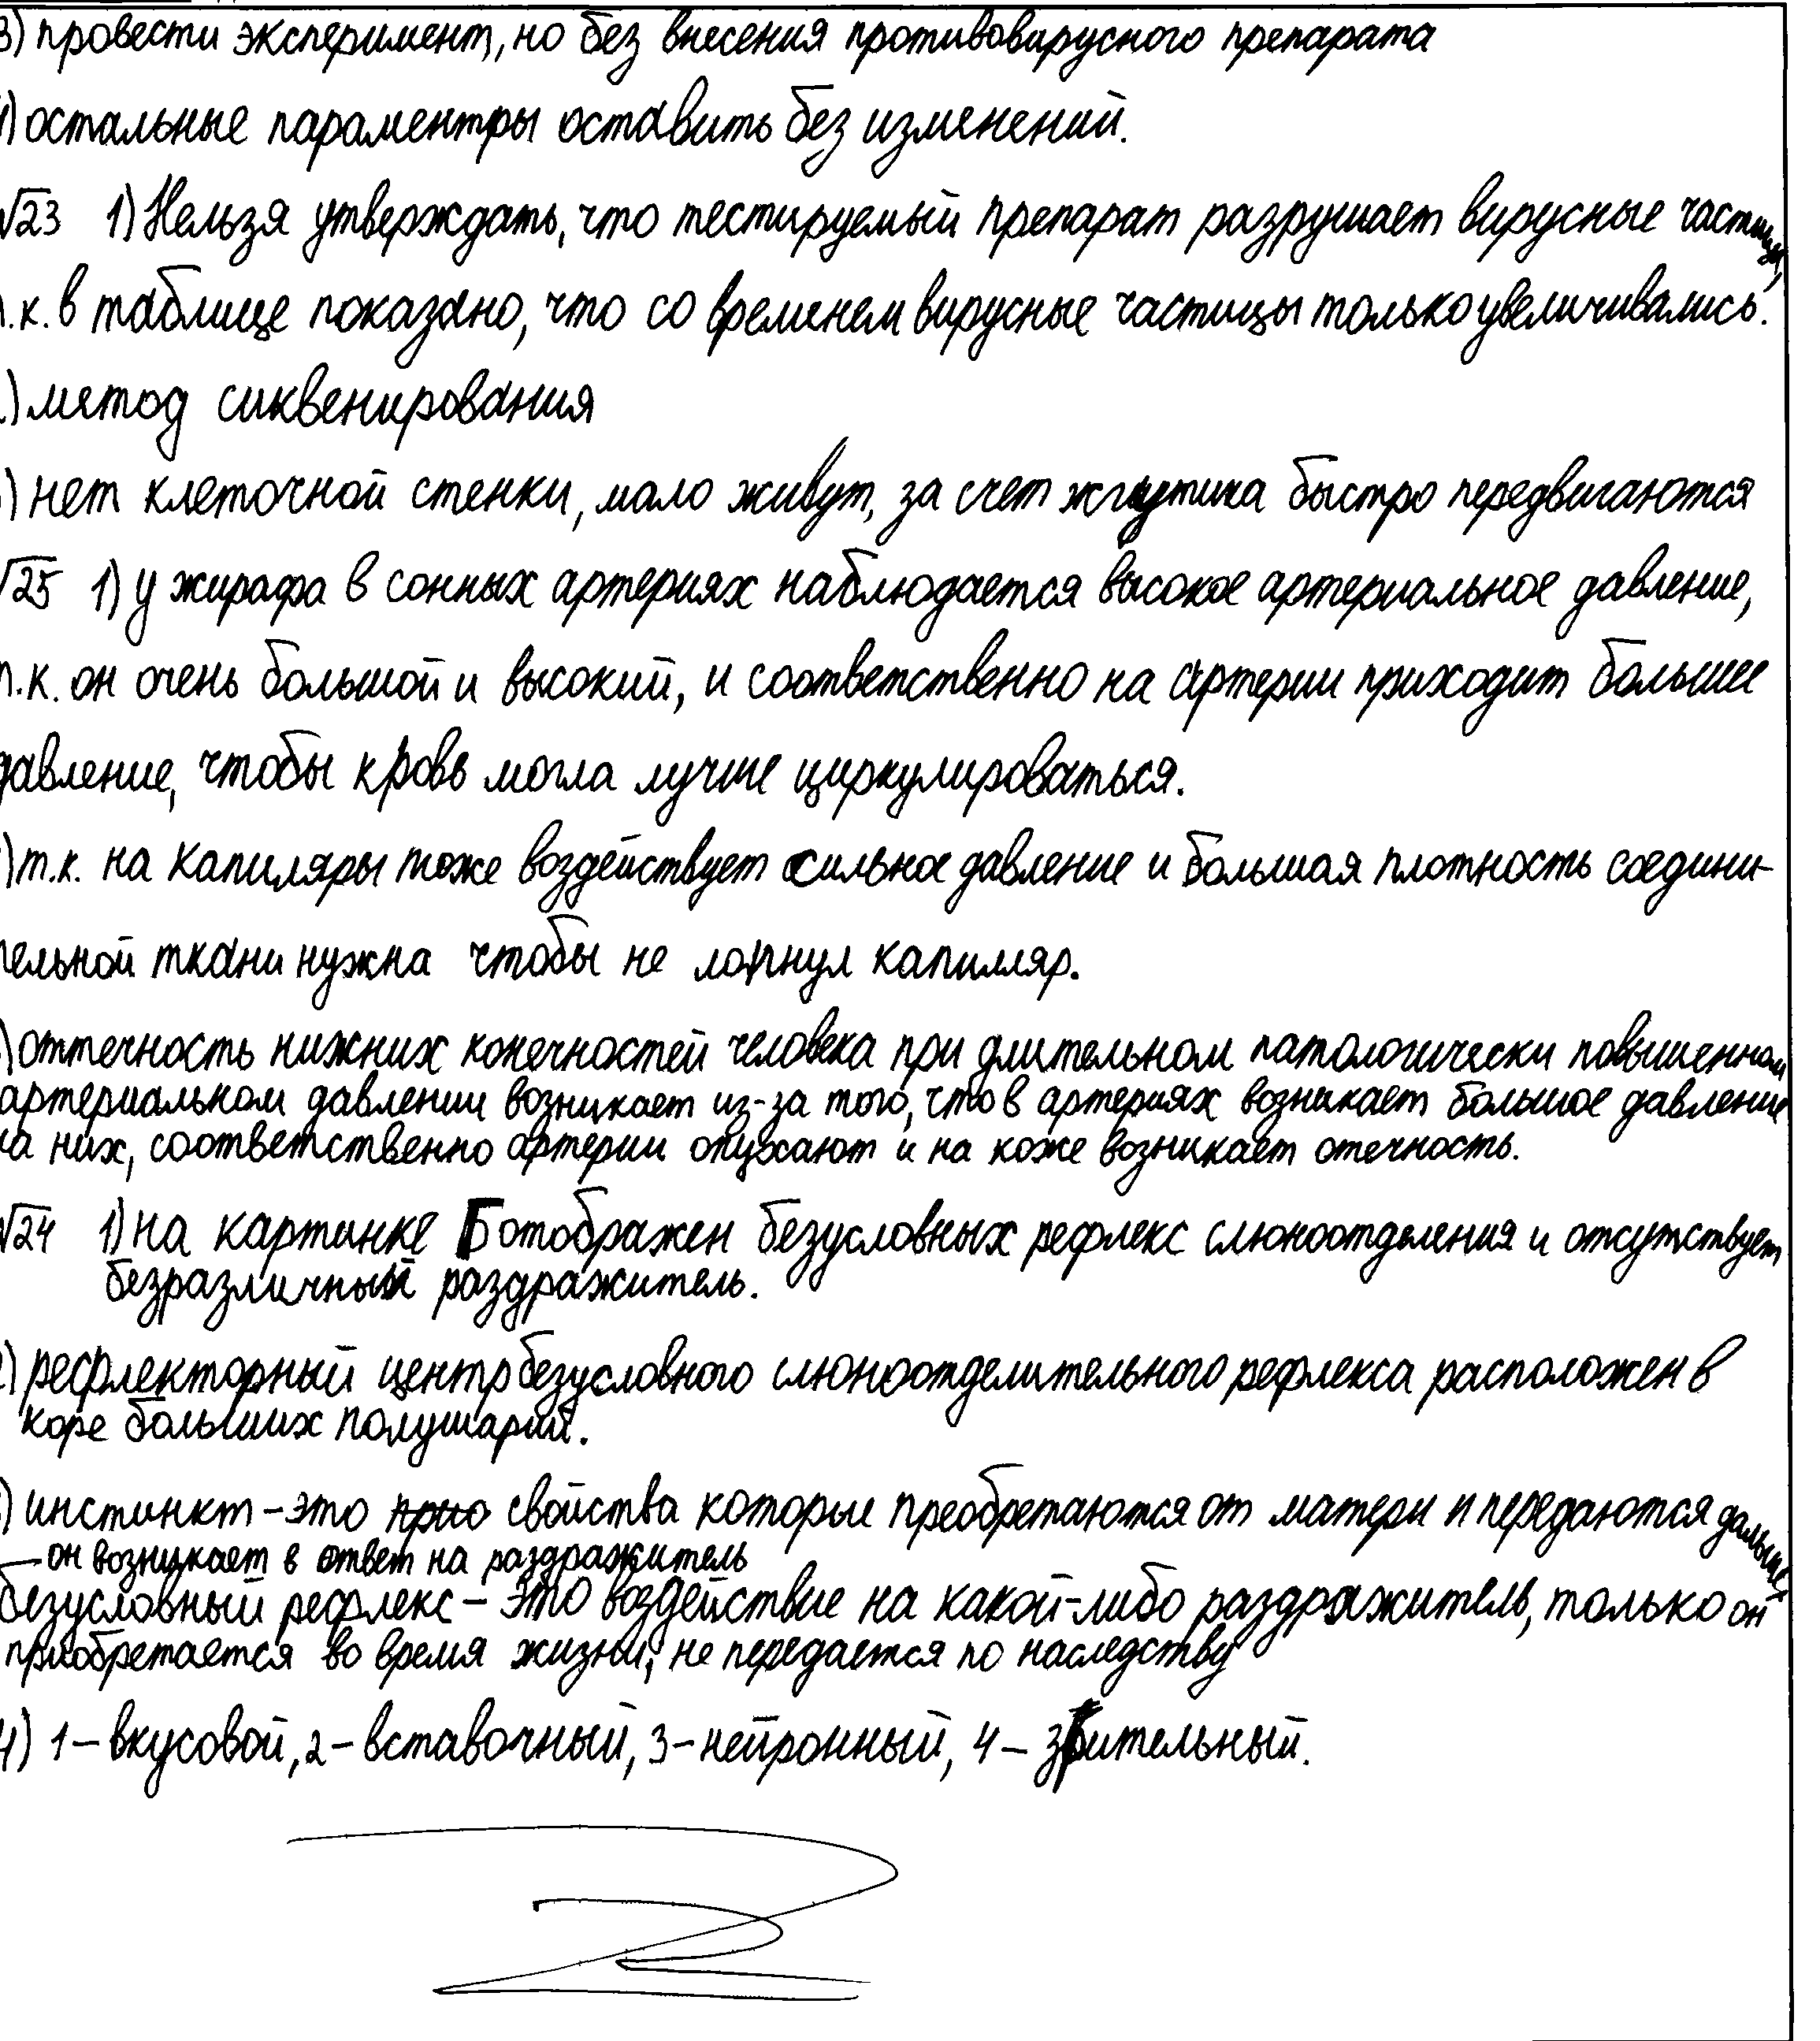 3) провести эксперимент, но без внесения противовирусного препарата
4) остальные параментры оставить без изменений.
√23 1) Нельзя утверждать, что тестируемый препарат разрушает вирусные частицы,
т.к. в таблице показано, что со временем вирусные частицы только увеличивались.
) метод сиквенирования
) нет клеточной стенки, мало живут, за счет жгутика быстро передвигаются
√25 1) у жирафа в сонных артериях наблюдается высокое артериальное давление,
т.к. он очень большой и высокий, и соответственно на артерии приходит большее
давление, чтобы кровь могла лучше циркулироваться.
) т.к. на капиляры тоже воздействует сильное давление и большая плотность соедини-
тельной ткани нужна чтобы не лопнул капилляр.
) оттечность нижних конечностей человека при длительном патологически повышенном
артериальном давлении возникает из-за того, что в артериях возникает большое давление
на них, соответственно артерии опухают и на коже возникает отечность.
√24 1) на картинке Б отображен безусловных рефлекс слюноотделения и отсутствует
безразличный раздражитель.
2) рефлекторный центр безусловного слюноотделительного рефлекса расположен в
коре больших полушарий.
) инстинкт – это свойства которые преобретаются от матери и передаются дальше,
– он возникает в ответ на раздражитель
безусловный рефлекс – это воздействие на какой-либо раздражитель, только он
приобретается во время жизни, не передается по наследству
4) 1 – вкусовой, 2 – вставочный, 3 – нейронный, 4 – зрительный.